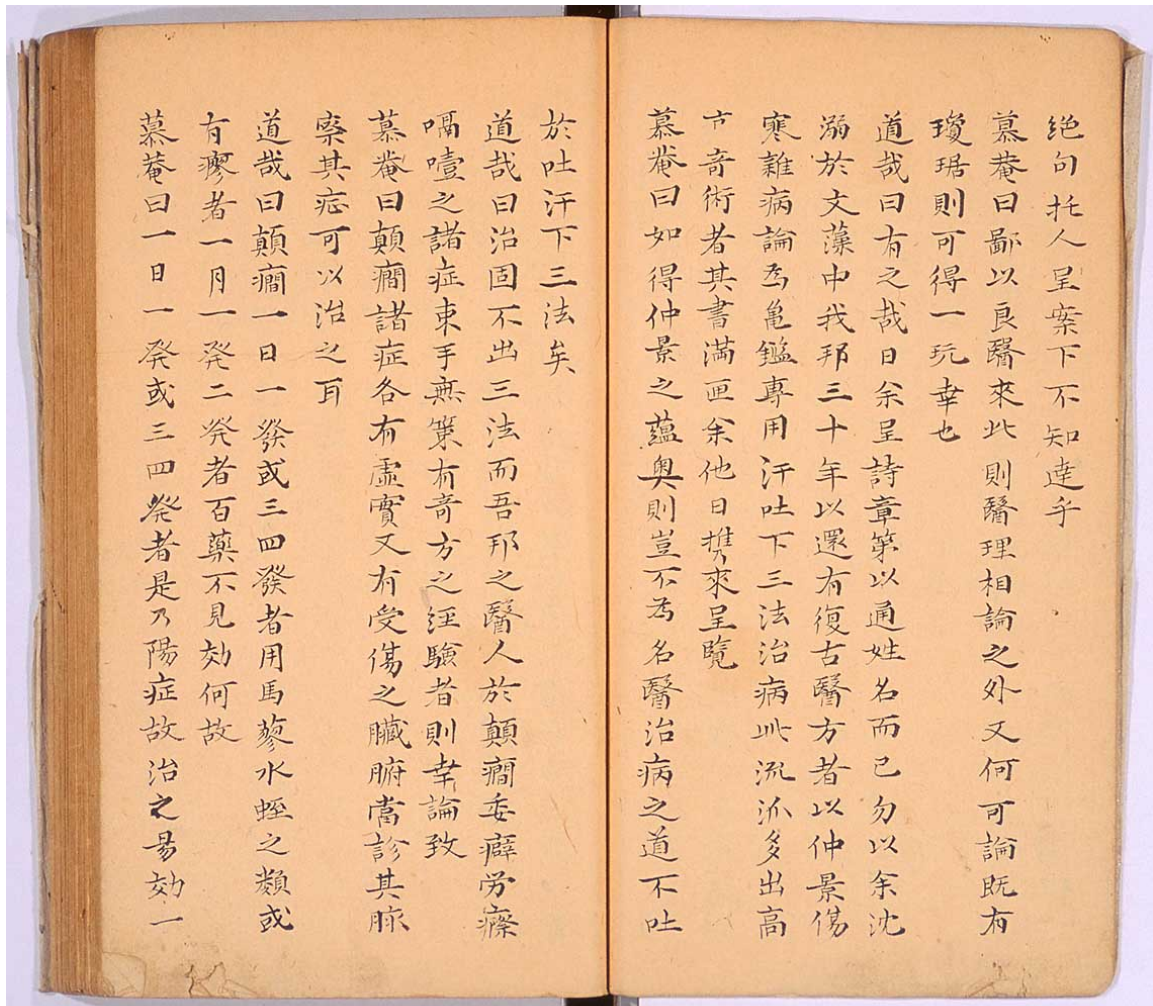 绝句托人呈案下不知達乎
慕菴曰鄙以良醫來此則醫理相論之外又何可論既有
瓊琚則可得一玩幸也
道哉曰有之哉日余呈詩章第以通姓名而已勿以余沈
溺於文藻中我邦三十年以還有復古醫方者以仲景傷
寒雜病論為亀鑑專用汗吐下三法治病此流派多出高
古奇術者其書満匣余他日携來呈覽
慕菴曰如得仲景之蘊奥則豈不為名醫治病之道不吐
於吐汗下三法矣
道哉曰治固不出三法而吾邦之醫人於顛癎委癖労瘵
嗝噎之諸症束手無策有奇方之経驗者則幸論致
慕菴曰顛癎諸症各有虛實又有受傷之臓腑當診其脉
察其症可以治之耳
道哉曰顛癎一日一發或三四發者用馬蓼水蛭之類或
有瘳者一月一発二発者百藥不見効何故
慕菴曰一日一発或三四発者是乃陽症故治之易効一